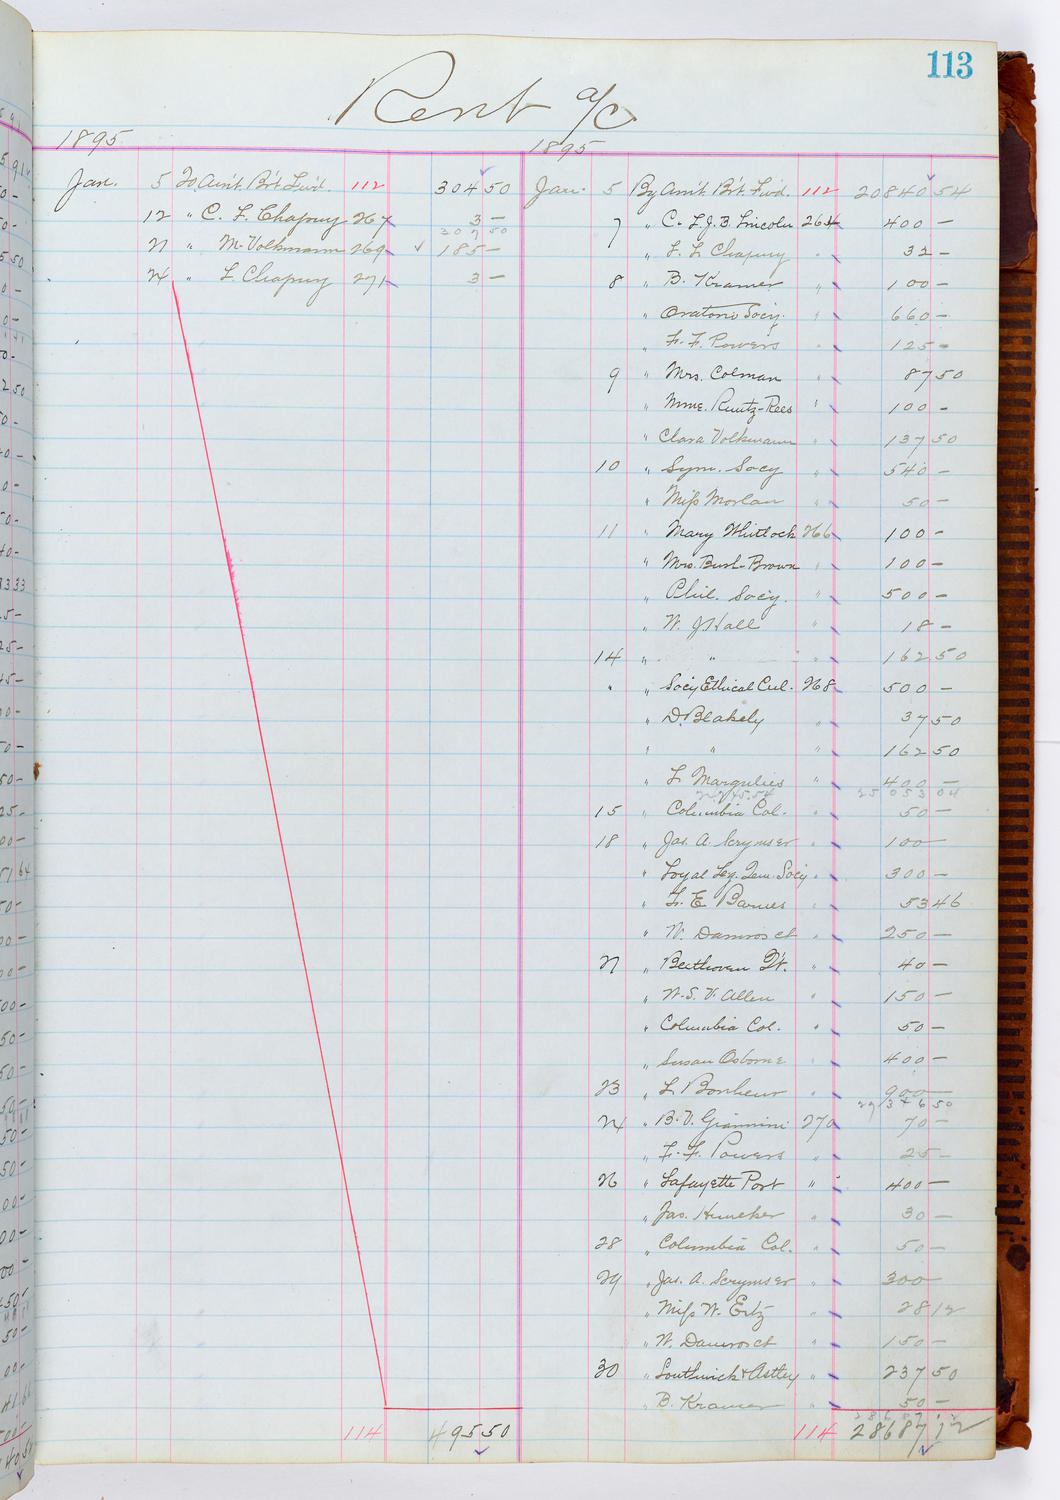 113
Rent a/c
1895 1895
Jan. 5 To Am't. Br't. Fw'd. 112 304 50
12 " C. L. Chapury 267 3 -
307 50
21 " M. Volkmann 269 185 -
24 " L. Chapury 271 3 -
114 495 50
Jan. 5 By Am't. Br't. Fwd. 112 20840 54
7 " C. L. J. B. Lincoln 264 400 -
" L. L Chapury " 32 -
8 " B. Kramer " 100 -
" Oratorio Soc'y. " 660 -
" F. F. Powers " 125 -
9 " Mrs. Colman " 87 50
" Mme. Runtz-Rees " 100 -
" Clara Volkmann " 137 50
10 " Sym. Socy " 540 -
" Miss Morlan " 50 -
11 " Mary Whitlock 266 100 -
" Mrs. Bush-Brown " 100 -
" Phil. Soc'y. " 500 -
" W. J Hall " 18 -
14 " " " 162 50
" " Soc'y Ethical Cul. 268 500 -
" D. Blakely " 37 50
" " " 162 50
" L. Margulies " 400 -
25 053 04
15 " Columbia Col. " 50 -
18 " Jas. A. Scrymser " 100 -
" Loyal Leg. Tem. Soc'y " 300 -
" F. E. Barnes " 53 46
" W. Damrosch " 250 -
21 " Beethoven Q't. " 40 -
" W. S. V. Allen " 150 -
" Columbia Col. " 50 -
" Susan Osborne " 400 -
23 " L. Bonheur " 900 -
27 346 50
24 " B. V. Giannini 270 70 -
" F. F. Powers " 25 -
26 " Lafayette Post " 400 -
" Jas. Huneker " 30 -
28 " Columbia Col. " 50 -
29 " Jas. A. Scrymser " 300
" Miss W. Ertz " 28 12
" W. Damrosch " 150 -
30 " Southwick & Astley " 237 50
" B. Kramer " 50 -
114 28687 12